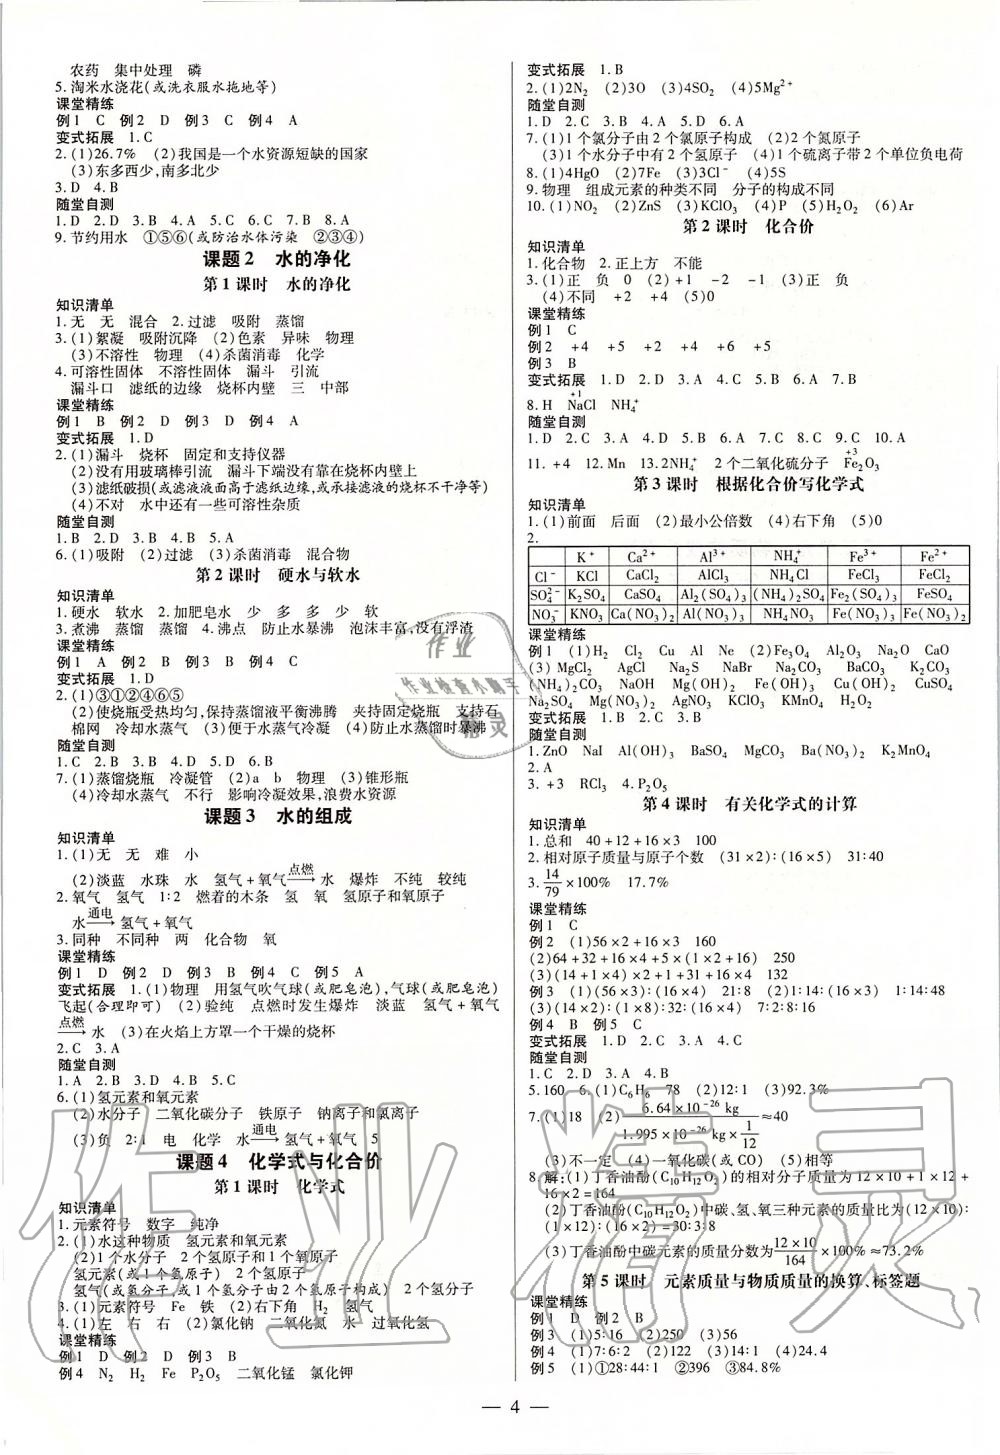 农药　集中处理　磷
5.淘米水浇花(或洗衣服水拖地等)
课堂精练
例1　C　例2　D　例3　C　例4　A
变式拓展　1.C
2.(1)26.7%　(2)我国是一个水资源短缺的国家
(3)东多西少,南多北少
3.D　4.B
随堂自测
1.D　2.D　3.B　4.A　5.C　6.C　7.B　8.A
9.节约用水　①⑤⑥(或防治水体污染　②③④)
课题2　水的净化
第1课时　水的净化
知识清单
1.无　无　混合　2.过滤　吸附　蒸馏
3.(1)絮凝　吸附沉降　(2)色素　异味　物理
(3)不溶性　物理　(4)杀菌消毒　化学
4.可溶性固体　不溶性固体　漏斗　引流
漏斗口　滤纸的边缘　烧杯内壁　三　中部
课堂精练
例1　B　例2　D　例3　D　例4　A
变式拓展　1.D
2.(1)漏斗　烧杯　固定和支持仪器
(2)没有用玻璃棒引流　漏斗下端没有靠在烧杯内壁上
(3)滤纸破损(或滤液液面高于滤纸边缘,或承接滤液的烧杯不干净等)
(4)不对　水中还有一些可溶性杂质
随堂自测
1.B　2.D　3.B　4.B　5.A
6.(1)吸附　(2)过滤　(3)杀菌消毒　混合物
第2课时　硬水与软水
知识清单
1.硬水　软水　2.加肥皂水　少　多　多　少　软
3.煮沸　蒸馏　蒸馏　4.沸点　防止水暴沸　泡沫丰富,没有浮渣
课堂精练
例1　A　例2　B　例3　B　例4　B
变式拓展　1.D
2.(1)③①②④⑥⑤
(2)使烧瓶受热均匀,保持蒸馏液平衡沸腾　夹持固定烧瓶　支持石
棉网　冷却水蒸气　(3)便于水蒸气冷凝　(4)防止水蒸馏时暴沸
随堂自测
1.C　2.B　3.B　4.D　5.D　6.B
7.(1)蒸馏烧瓶　冷凝管　(2)a　b　物理　(3)锥形瓶
(4)冷却水蒸气　不行　影响冷凝效果,浪费水资源
课题3　水的组成
知识清单
1.(1)无　无　难　小
(2)淡蓝　水珠　水　氢气+氧气 点燃→ 水　爆炸　不纯　较纯
2.氧气　氢气　1:2　燃着的木条　氢　氧　氢原子和氧原子
水 通电→ 氢气+氧气
3.同种　不同种　两　化合物　氧
课堂精练
例1　D　例2　D　例3　B　例4　C　例5　A
变式拓展　1.(1)物理　用氢气吹气球(或肥皂泡),气球(或肥皂泡)
飞起(合理即可)　(2)验纯　点燃时发生爆炸　淡蓝　氢气+氧气
点燃→ 水　(3)在火焰上方罩一个干燥的烧杯
2.C　3.A
随堂自测
1.A　2.B　3.D　4.B　5.C
6.(1)氢元素和氧元素
(2)水分子　二氧化碳分子　铁原子　钠离子和氯离子
(3)负　2:1　电　化学　水 通电→ 氢气+氧气　5
课题4　化学式与化合价
第1课时　化学式
知识清单
1.元素符号　数字　纯净
2.(1)水这种物质　氢元素和氧元素
(2)1个水分子　2个氢原子和1个氧原子
氢元素(或1个氢原子)　2个氢原子
氢气(或氢分子,或1个氢分子由2个氢原子构成)　2个氢分子
3.(1)元素符号　Fe　铁　(2)右下角　H₂　氢气
4.(1)左　右　右　(2)氯化钠　二氧化氮　水　过氧化氢
课堂精练
例1　D　例2　D　例3　B
例4　N₂　H₂　Fe　P₂O₅　二氧化锰　氯化钾
变式拓展　1.B
2.(1)2N₂　(2)3O　(3)4SO₂　(4)5Mg²⁺
随堂自测
1.D　2.C　3.B　4.A　5.D　6.A
7.(1)1个氯分子由2个氯原子构成　(2)2个氮原子
(3)1个水分子中有2个氢原子　(4)1个硫离子带2个单位负电荷
8.(1)4HgO　(2)7Fe　(3)3Cl⁻　(4)5S
9.物理　组成元素的种类不同　分子的构成不同
10.(1)NO₂　(2)ZnS　(3)KClO₃　(4)P　(5)H₂O₂　(6)Ar
第2课时　化合价
知识清单
1.化合物　2.正上方　不能
3.(1)正　负　0　(2)+1　-2　-1　(3)正　负
(4)不同　+2　+4　(5)0
课堂精练
例1　C
例2　+4　+5　+2　+4　+6　+5
例3　B
变式拓展　1.D　2.D　3.A　4.C　5.B　6.A　7.B
8.H　Na(+1)Cl　NH₄⁺
随堂自测
1.D　2.C　3.A　4.D　5.B　6.A　7.B　8.C　9.C　10.A
11.+4　12.Mn　13.2NH₄⁺　2个二氧化硫分子　Fe(+3)₂O₃
第3课时　根据化合价写化学式
知识清单
1.(1)前面　后面　(2)最小公倍数　(4)右下角　(5)0
2.
K⁺　Ca²⁺　Al³⁺　NH₄⁺　Fe³⁺　Fe²⁺
Cl⁻　KCl　CaCl₂　AlCl₃　NH₄Cl　FeCl₃　FeCl₂
SO₄²⁻　K₂SO₄　CaSO₄　Al₂(SO₄)₃　(NH₄)₂SO₄　Fe₂(SO₄)₃　FeSO₄
NO₃⁻　KNO₃　Ca(NO₃)₂　Al(NO₃)₃　NH₄NO₃　Fe(NO₃)₃　Fe(NO₃)₂
课堂精练
例1　(1)H₂　Cl₂　Cu　Al　Ne　(2)Fe₃O₄　Al₂O₃　Na₂O　CaO
(3)MgCl₂　AgCl　Na₂S　NaBr　Na₂CO₃　BaCO₃　K₂CO₃
(NH₄)₂CO₃　NaOH　Mg(OH)₂　Fe(OH)₃　Cu(OH)₂　CuSO₄
Na₂SO₄　Mg(NO₃)₂　AgNO₃　KClO₃　KMnO₄　H₂O₂
变式拓展　1.B　2.C　3.B
随堂自测
1.ZnO　NaI　Al(OH)₃　BaSO₄　MgCO₃　Ba(NO₃)₂　K₂MnO₄
2.A
3.+3　RCl₃　4.P₂O₅
第4课时　有关化学式的计算
知识清单
1.总和　40+12+16×3　100
2.相对原子质量与原子个数　(31×2):(16×5)　31:40
3.14/79×100%　17.7%
课堂精练
例1　C
例2　(1)56×2+16×3　160
(2)64+32+16×4+5×(1×2+16)　250
(3)(14+1×4)×2+1+31+16×4　132
例3　(1)(56×3):(16×4)　21:8　(2)1:14:(16×3)　1:14:48
(3)(14×2):(1×8):32:(16×4)　7:2:8:16
例4　B　例5　C
变式拓展　1.D　2.C　3.A　4.C
随堂自测
1.C　2.D　3.A　4.B
5.160　6.(1)C₆H₆　78　(2)12:1　(3)92.3%
7.(1)18　(2) 6.64×10⁻²⁶ kg / (1.995×10⁻²⁶ kg×1/12) ≈40
(3)不一定　(4)一氧化碳(或CO)　(5)相等
8.解:(1)丁香油酚(C₁₀H₁₂O₂)的相对分子质量为12×10+1×12+
16×2=164
(2)丁香油酚(C₁₀H₁₂O₂)中碳、氢、氧三种元素的质量比为(12×10):
(1×12):(16×2)=30:3:8
(3)丁香油酚中碳元素的质量分数为12×10/164×100%≈73.2%
第5课时　元素质量与物质质量的换算、标签题
课堂精练
例1　D　例2　B
例3　(1)5:16　(2)250　(3)56
例4　(1)122　(2)120　(3)14:1　(4)24.4
例5　(1)①28:44:1　②396　③84.8%
— 4 —
作业
作业检查小助手
精灵
作业精灵